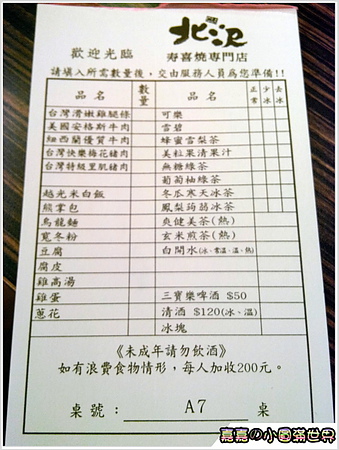 北澤
歡迎光臨 寿喜燒專門店
請填入所需數量後，交由服務人員為您準備!!
品名 數量 品名 正常 少冰 去冰
台灣滑嫩雞腿條 可樂
美國安格斯牛肉 雪碧
紐西蘭優質牛肉 蜂蜜雪梨茶
台灣快樂梅花豬肉 美粒果清果汁
台灣特級里肌豬肉 無糖綠茶
葡萄柚綠茶
越光米白飯 冬瓜寒天冰茶
熊掌包 鳳梨蒟蒻冰茶
烏龍麵 爽健美茶(熱)
寬冬粉 玄米煎茶(熱)
豆腐 白開水(冰、常溫、溫、熱)
腐皮
雞高湯
雞蛋 三寶樂啤酒 $50
蔥花 清酒 $120(冰、溫)
冰塊
《未成年請勿飲酒》
如有浪費食物情形，每人加收200元。
桌號： A7 桌
嘉嘉の小圓滿世界